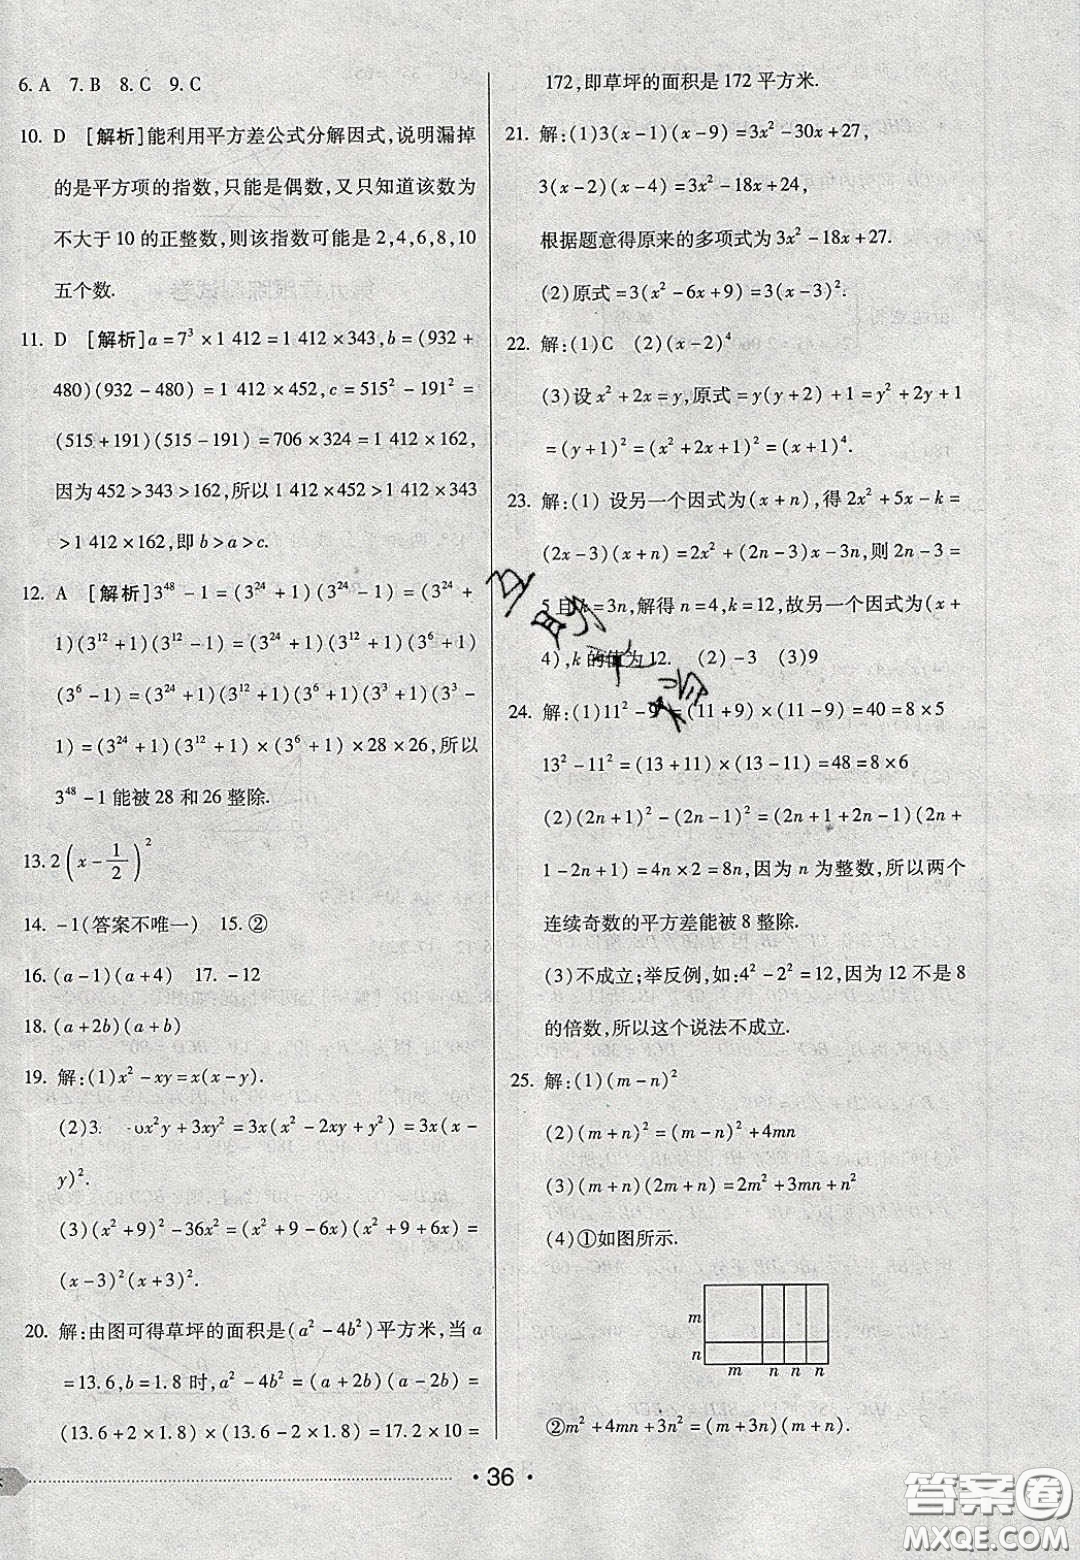 6. A   7. B   8. C   9. C
10. D  [解析]能利用平方差公式分解因式,说明漏掉
的是平方项的指数,只能是偶数,又只知道该数为
不大于10的正整数,则该指数可能是2,4,6,8,10
五个数.
11. D  [解析]a=7³×1 412=1 412×343,b=(932+
480)(932-480)=1 412×452,c=515²-191²=
(515+191)(515-191)=706×324=1 412×162,
因为452>343>162,所以1 412×452>1 412×343
>1 412×162,即b>a>c.
12. A  [解析]3⁴⁸-1=(3²⁴+1)(3²⁴-1)=(3²⁴+
1)(3¹²+1)(3¹²-1)=(3²⁴+1)(3¹²+1)(3⁶+1)
(3⁶-1)=(3²⁴+1)(3¹²+1)(3⁶+1)(3³+1)(3³-
1)=(3²⁴+1)(3¹²+1)×(3⁶+1)×28×26,所以
3⁴⁸-1能被28和26整除.
13. 2(x-1/2)²
14. -1(答案不唯一)   15. ②
16. (a-1)(a+4)   17. -12
18. (a+2b)(a+b)
19. 解:(1)x²-xy=x(x-y).
(2)3 x²y+3xy²=3x(x²-2xy+y²)=3x(x-
y)².
(3)(x²+9)²-36x²=(x²+9-6x)(x²+9+6x)=
(x-3)²(x+3)².
20. 解:由图可得草坪的面积是(a²-4b²)平方米,当a
=13.6,b=1.8时,a²-4b²=(a+2b)(a-2b)=
(13.6+2×1.8)×(13.6-2×1.8)=17.2×10=
172,即草坪的面积是172平方米.
21. 解:(1)3(x-1)(x-9)=3x²-30x+27,
3(x-2)(x-4)=3x²-18x+24,
根据题意得原来的多项式为3x²-18x+27.
(2)原式=3(x²-6x+9)=3(x-3)².
22. 解:(1)C   (2)(x-2)⁴
(3)设x²+2x=y,原式=y(y+2)+1=y²+2y+1
=(y+1)²=(x²+2x+1)²=(x+1)⁴.
23. 解:(1)设另一个因式为(x+n),得2x²+5x-k=
(2x-3)(x+n)=2x²+(2n-3)x-3n,则2n-3=
5且k=3n,解得n=4,k=12,故另一个因式为(x+
4),k的值为12.   (2)-3   (3)9
24. 解:(1)11²-9²=(11+9)×(11-9)=40=8×5
13²-11²=(13+11)×(13-11)=48=8×6
(2)(2n+1)²-(2n-1)²=(2n+1+2n-1)(2n+
1-2n+1)=4n×2=8n,因为n为整数,所以两个
连续奇数的平方差能被8整除.
(3)不成立;举反例,如:4²-2²=12,因为12不是8
的倍数,所以这个说法不成立.
25. 解:(1)(m-n)²
(2)(m+n)²=(m-n)²+4mn
(3)(m+n)(2m+n)=2m²+3mn+n²
(4)①如图所示.
m
n
m n n n
②m²+4mn+3n²=(m+3n)(m+n).
· 36 ·
答案圈
MXQE.COM